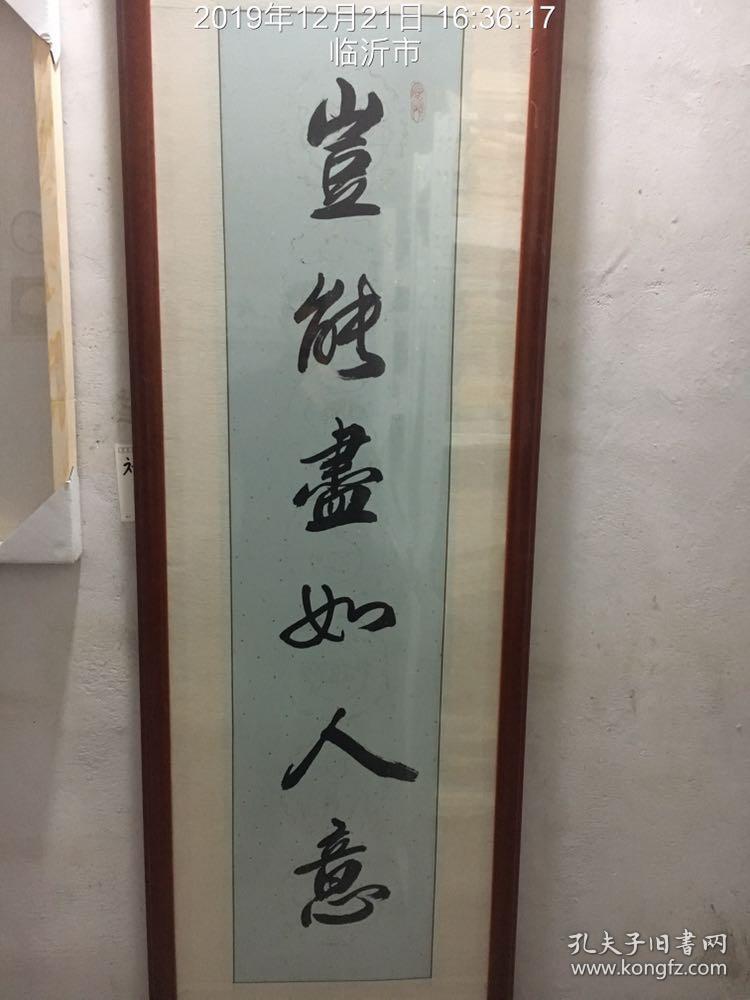 2019年12月21日 16:36:17
临沂市
豈能盡如人意
孔夫子旧書网
www.kongfz.com